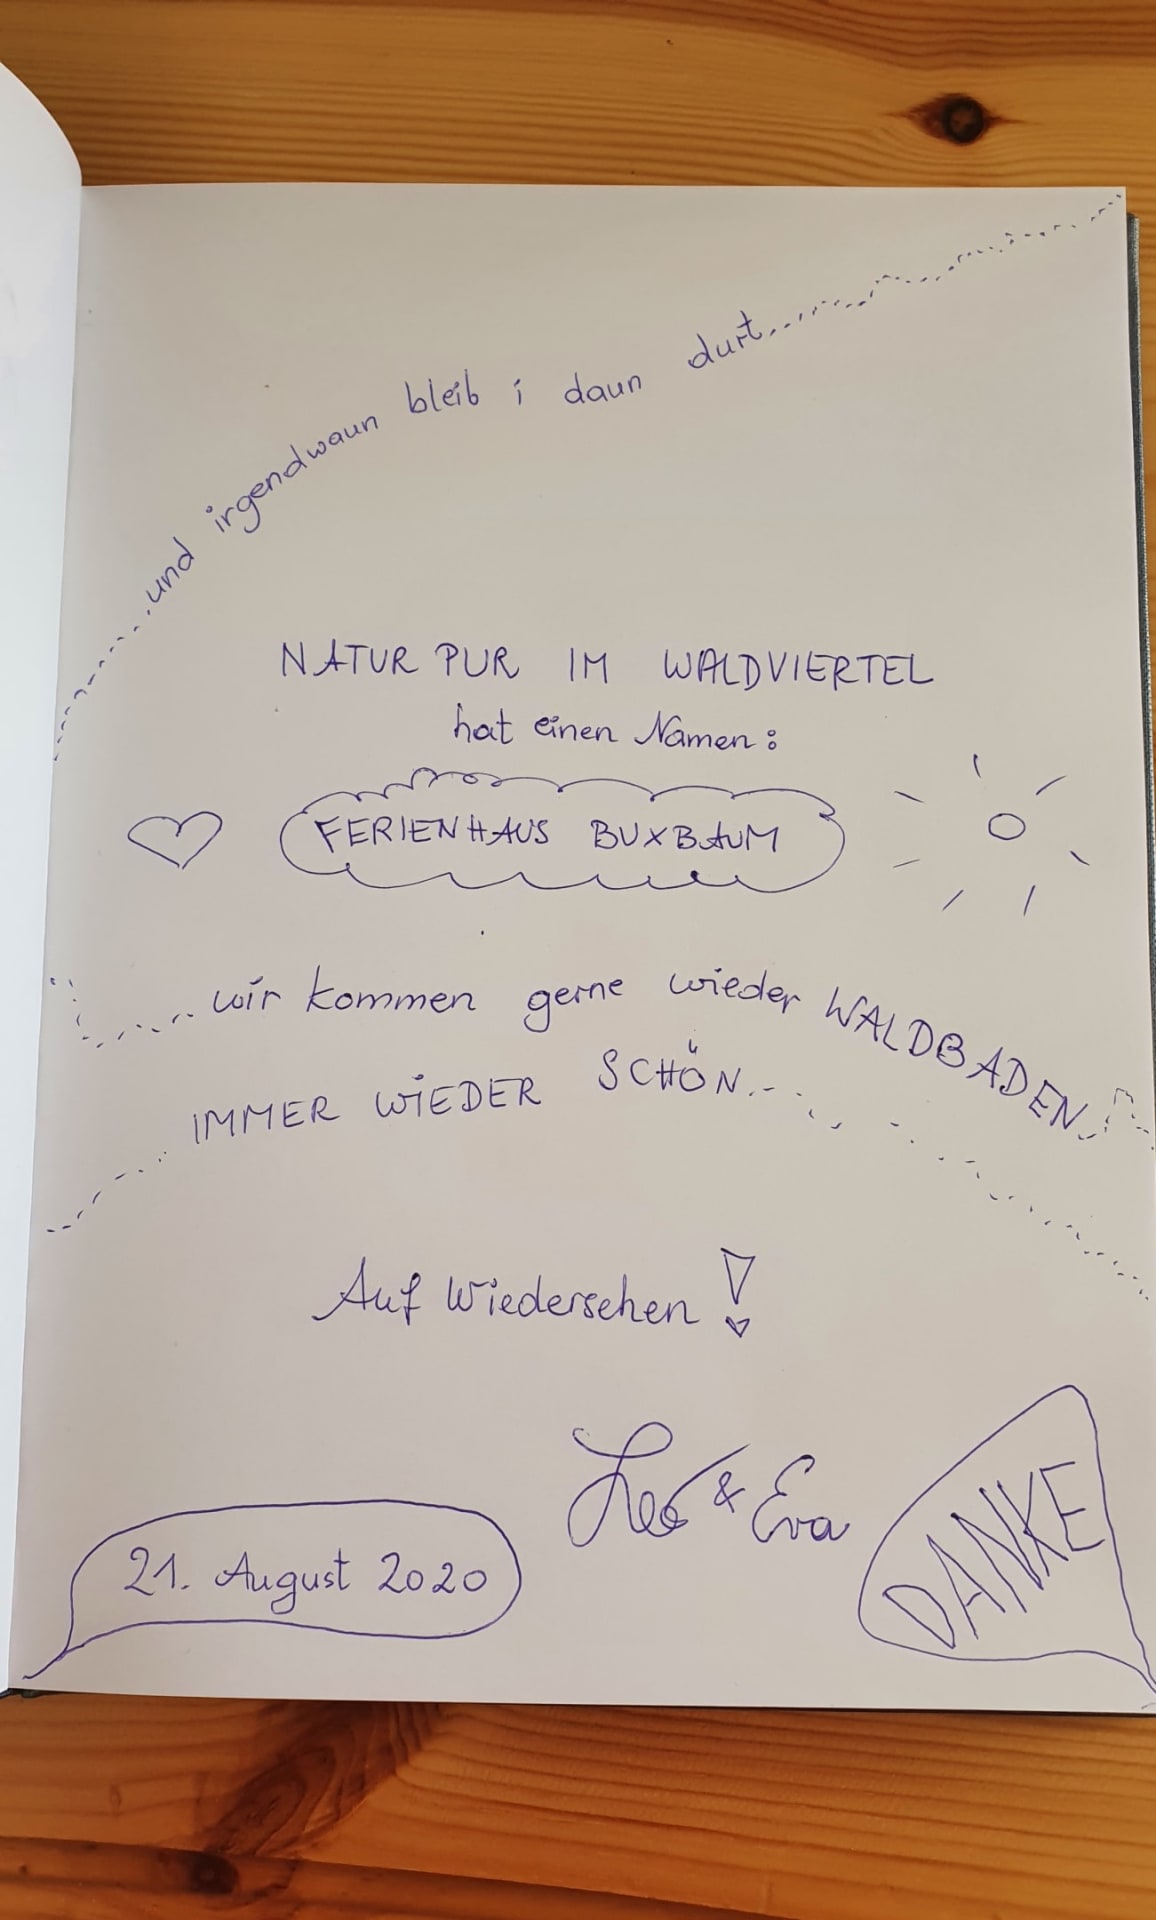 ...und irgendwaun bleib i daun durt...
NATUR PUR IM WALDVIERTEL
hat einen Namen:
FERIENHAUS BUXBAUM
...wir kommen gerne wieder WALDBADEN...
IMMER WIEDER SCHÖN...
Auf Wiedersehen!
Leo & Eva
DANKE
21. August 2020